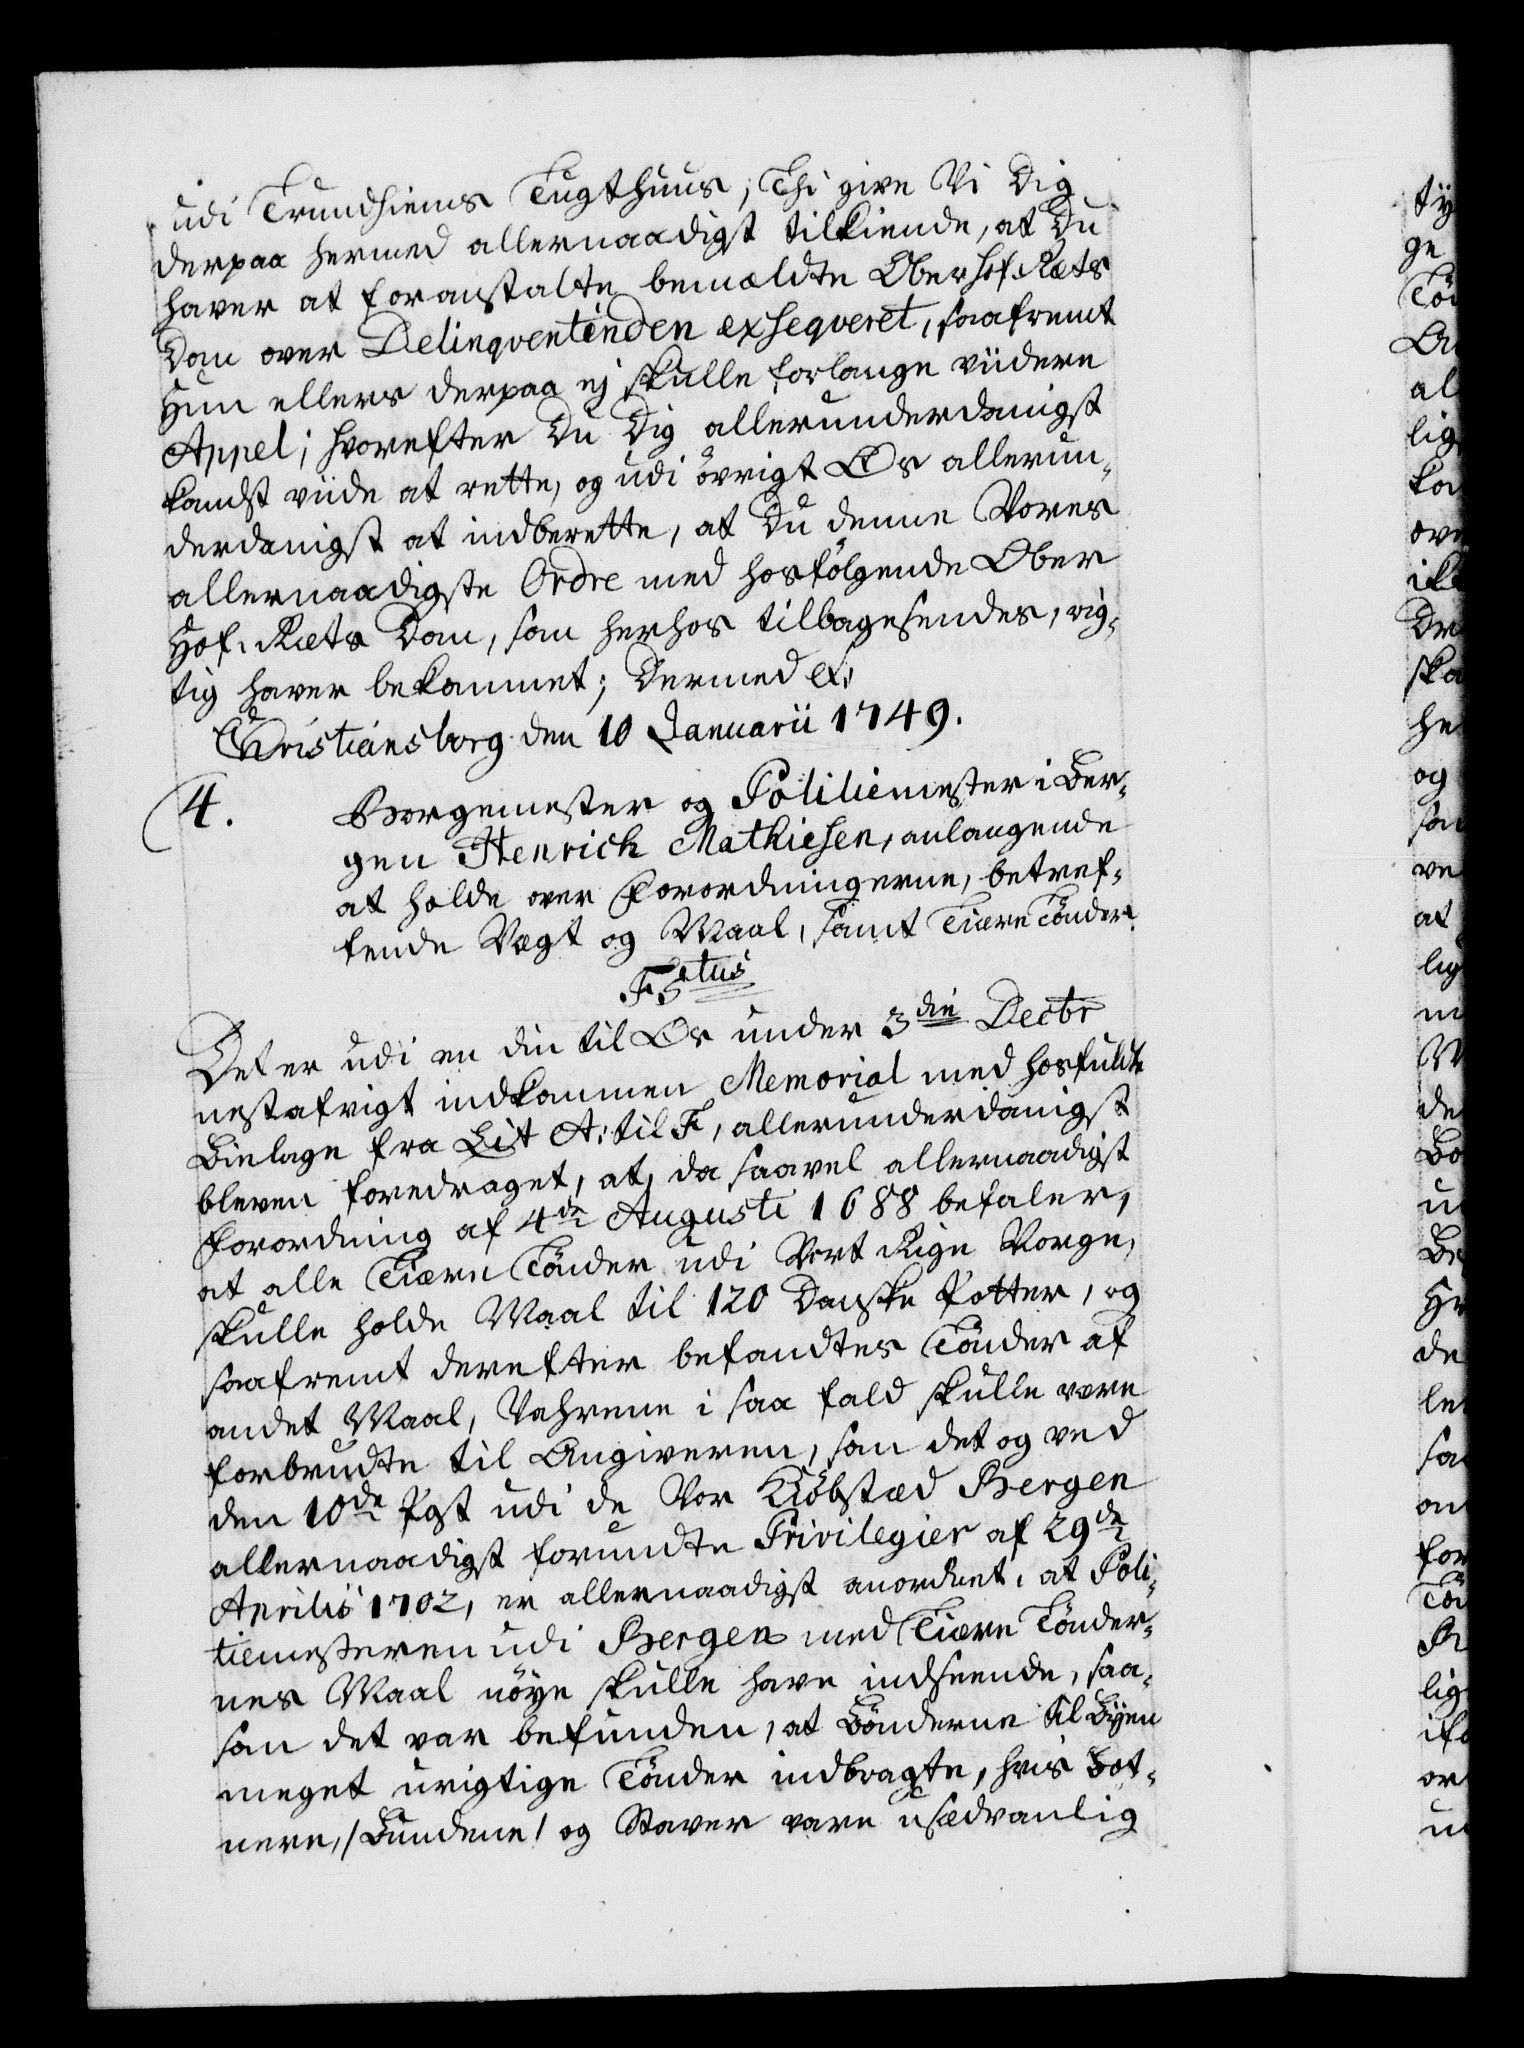 udi Trundhiems Tugthuus; Thi give Vi Dig
derpaa hermed allernaadigst tilkiende, at Du
haver at foranstalte bemældte OberHof-Rets
Dom over Delinqventinden exseqveret, saafremt
Hun ellers derpaa ej skulle forlange viidere
Appel; hvorefter Du Dig allerunderdanigst
kandst viide at rette, og udi övrigt Os allerun-
derdanigst at indberette, at Du denne Vores
allernaadigste Ordre med hosfölgende Ober
Hof-Rets Dom, som herhos tilbagesendes, rig-
tig haver bekommet; Dermed &.
Christiansborg den 10 Januarii 1749.
4. Borgemester og Politiemester i Ber-
gen Henrich Mathiesen, anlangende
at holde over Forordningerne, betref-
fende Vægt og Maal, samt Tiære Tönder.
F5tus
Det er udi en din til Os under 3die Decbr
nestafvigt indkommen Memorial med hosfuldte
Bielage fra Lit A: til F, allerunderdanigst
bleven foredraget, at, da saavel allernaadigst
Forordning af 4de Augusti 1688 befaler,
at alle Tiære Tönder udi Vort Rige Norge,
skulle holde Maal til 120 Danske Potter, og
saafremt derefter befandtes Tönder af
andet Maal, Vahrene i saa fald skulle være
forbrudte til Angiveren, som det og ved
den 10de Post udi de Vor Kiöbstæd Bergen
allernaadigst forundte Privilegier af 29de
Aprilis 1702, er allernaadigst anordnet, at Poli-
tiemesteren udi Bergen med Tiære Tönder-
nes Maal nöye skulle have indseende, saa-
som det var befunden, at Bönderne til Byen
meget urigtige Tönder indbragte, hvis Bot-
nere, /Bundene/ og Staver vare usædvanlig